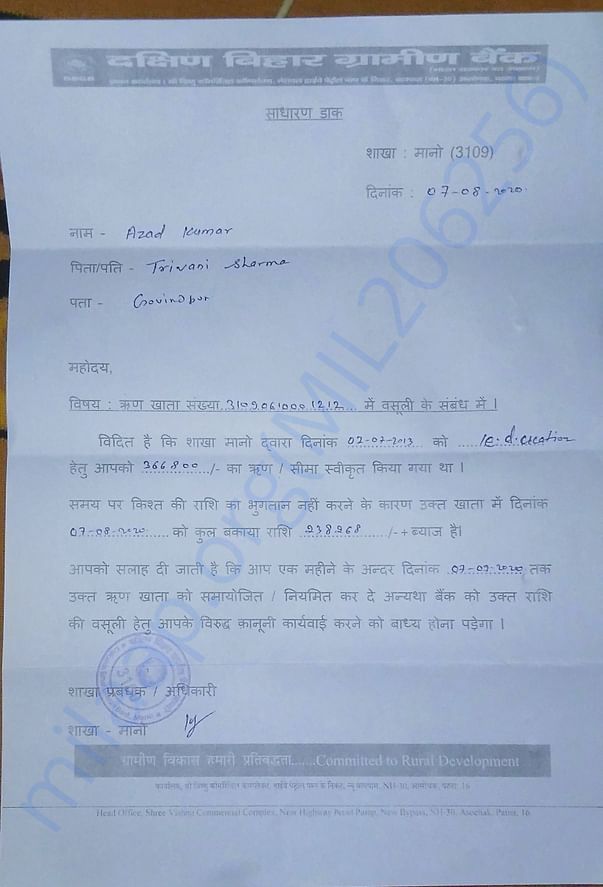 दक्षिण बिहार ग्रामीण बैंक
साधारण डाक
शाखा : मानो (3109)
दिनांक : 07-08-2020.
नाम - Azad Kumar
पिता/पति - Trivani Sharma
पता - Govindpur
महोदय,
विषय : ऋण खाता संख्या 31090610001212 में वसूली के संबंध में ।
विदित है कि शाखा मानो द्वारा दिनांक 02-07-2013 को creation
हेतु आपको 366800/- का ऋण / सीमा स्वीकृत किया गया था ।
समय पर किश्त की राशि का भुगतान नहीं करने के कारण उक्त खाता में दिनांक
07-08-2020 को कुल बकाया राशि /-+ब्याज है।
आपको सलाह दी जाती है कि आप एक महीने के अन्दर दिनांक तक
उक्त ऋण खाता को समायोजित / नियमित कर दे अन्यथा बैंक को उक्त राशि
की वसूली हेतु आपके विरुद्ध कानूनी कार्यवाई करने को बाध्य होना पड़ेगा ।
शाखा प्रबंधक / अधिकारी
शाखा - मानो
ग्रामीण विकास हमारी प्रतिबद्धता......Committed to Rural Development
Head Office, Shree Vishnu Commercial Complex, New Highway Petrol Pump, New Bypass, NH-30, Asochak, Patna, 16
milaap.org(MIL206256)